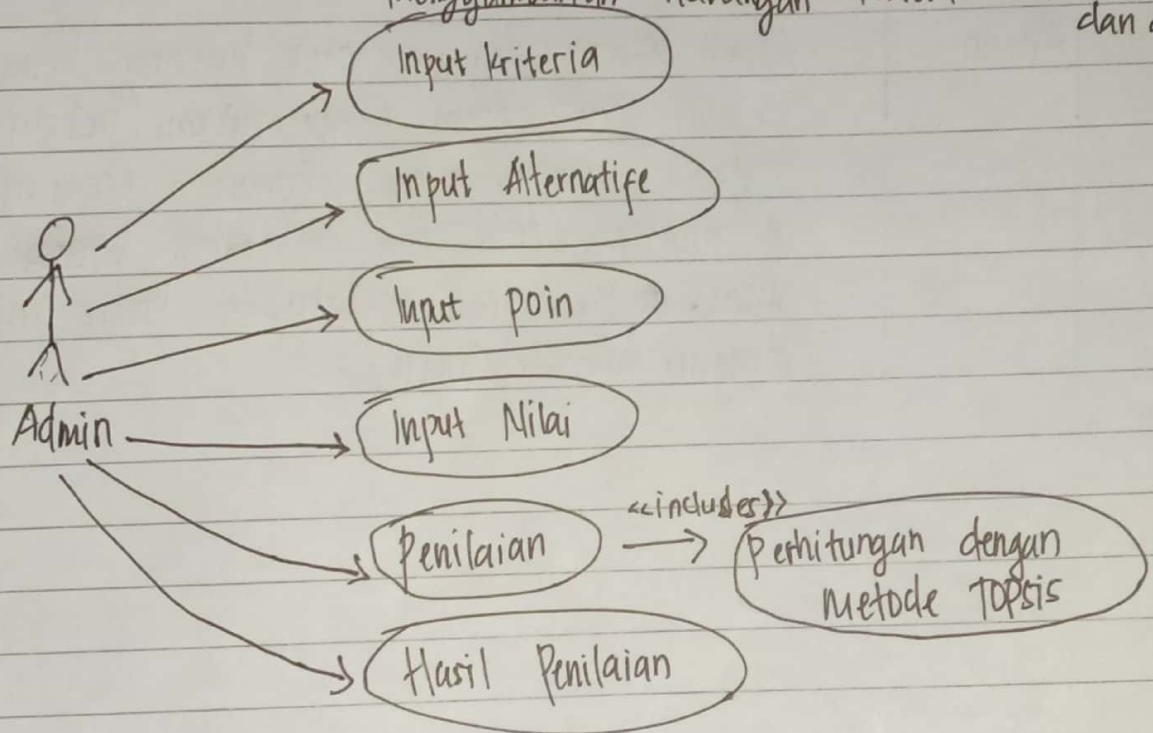 dan
Input kriteria
Input Alternatife
Input poin
Input Nilai
Admin
<<includes>>
Penilaian
Perhitungan dengan
metode TOPSIS
Hasil Penilaian